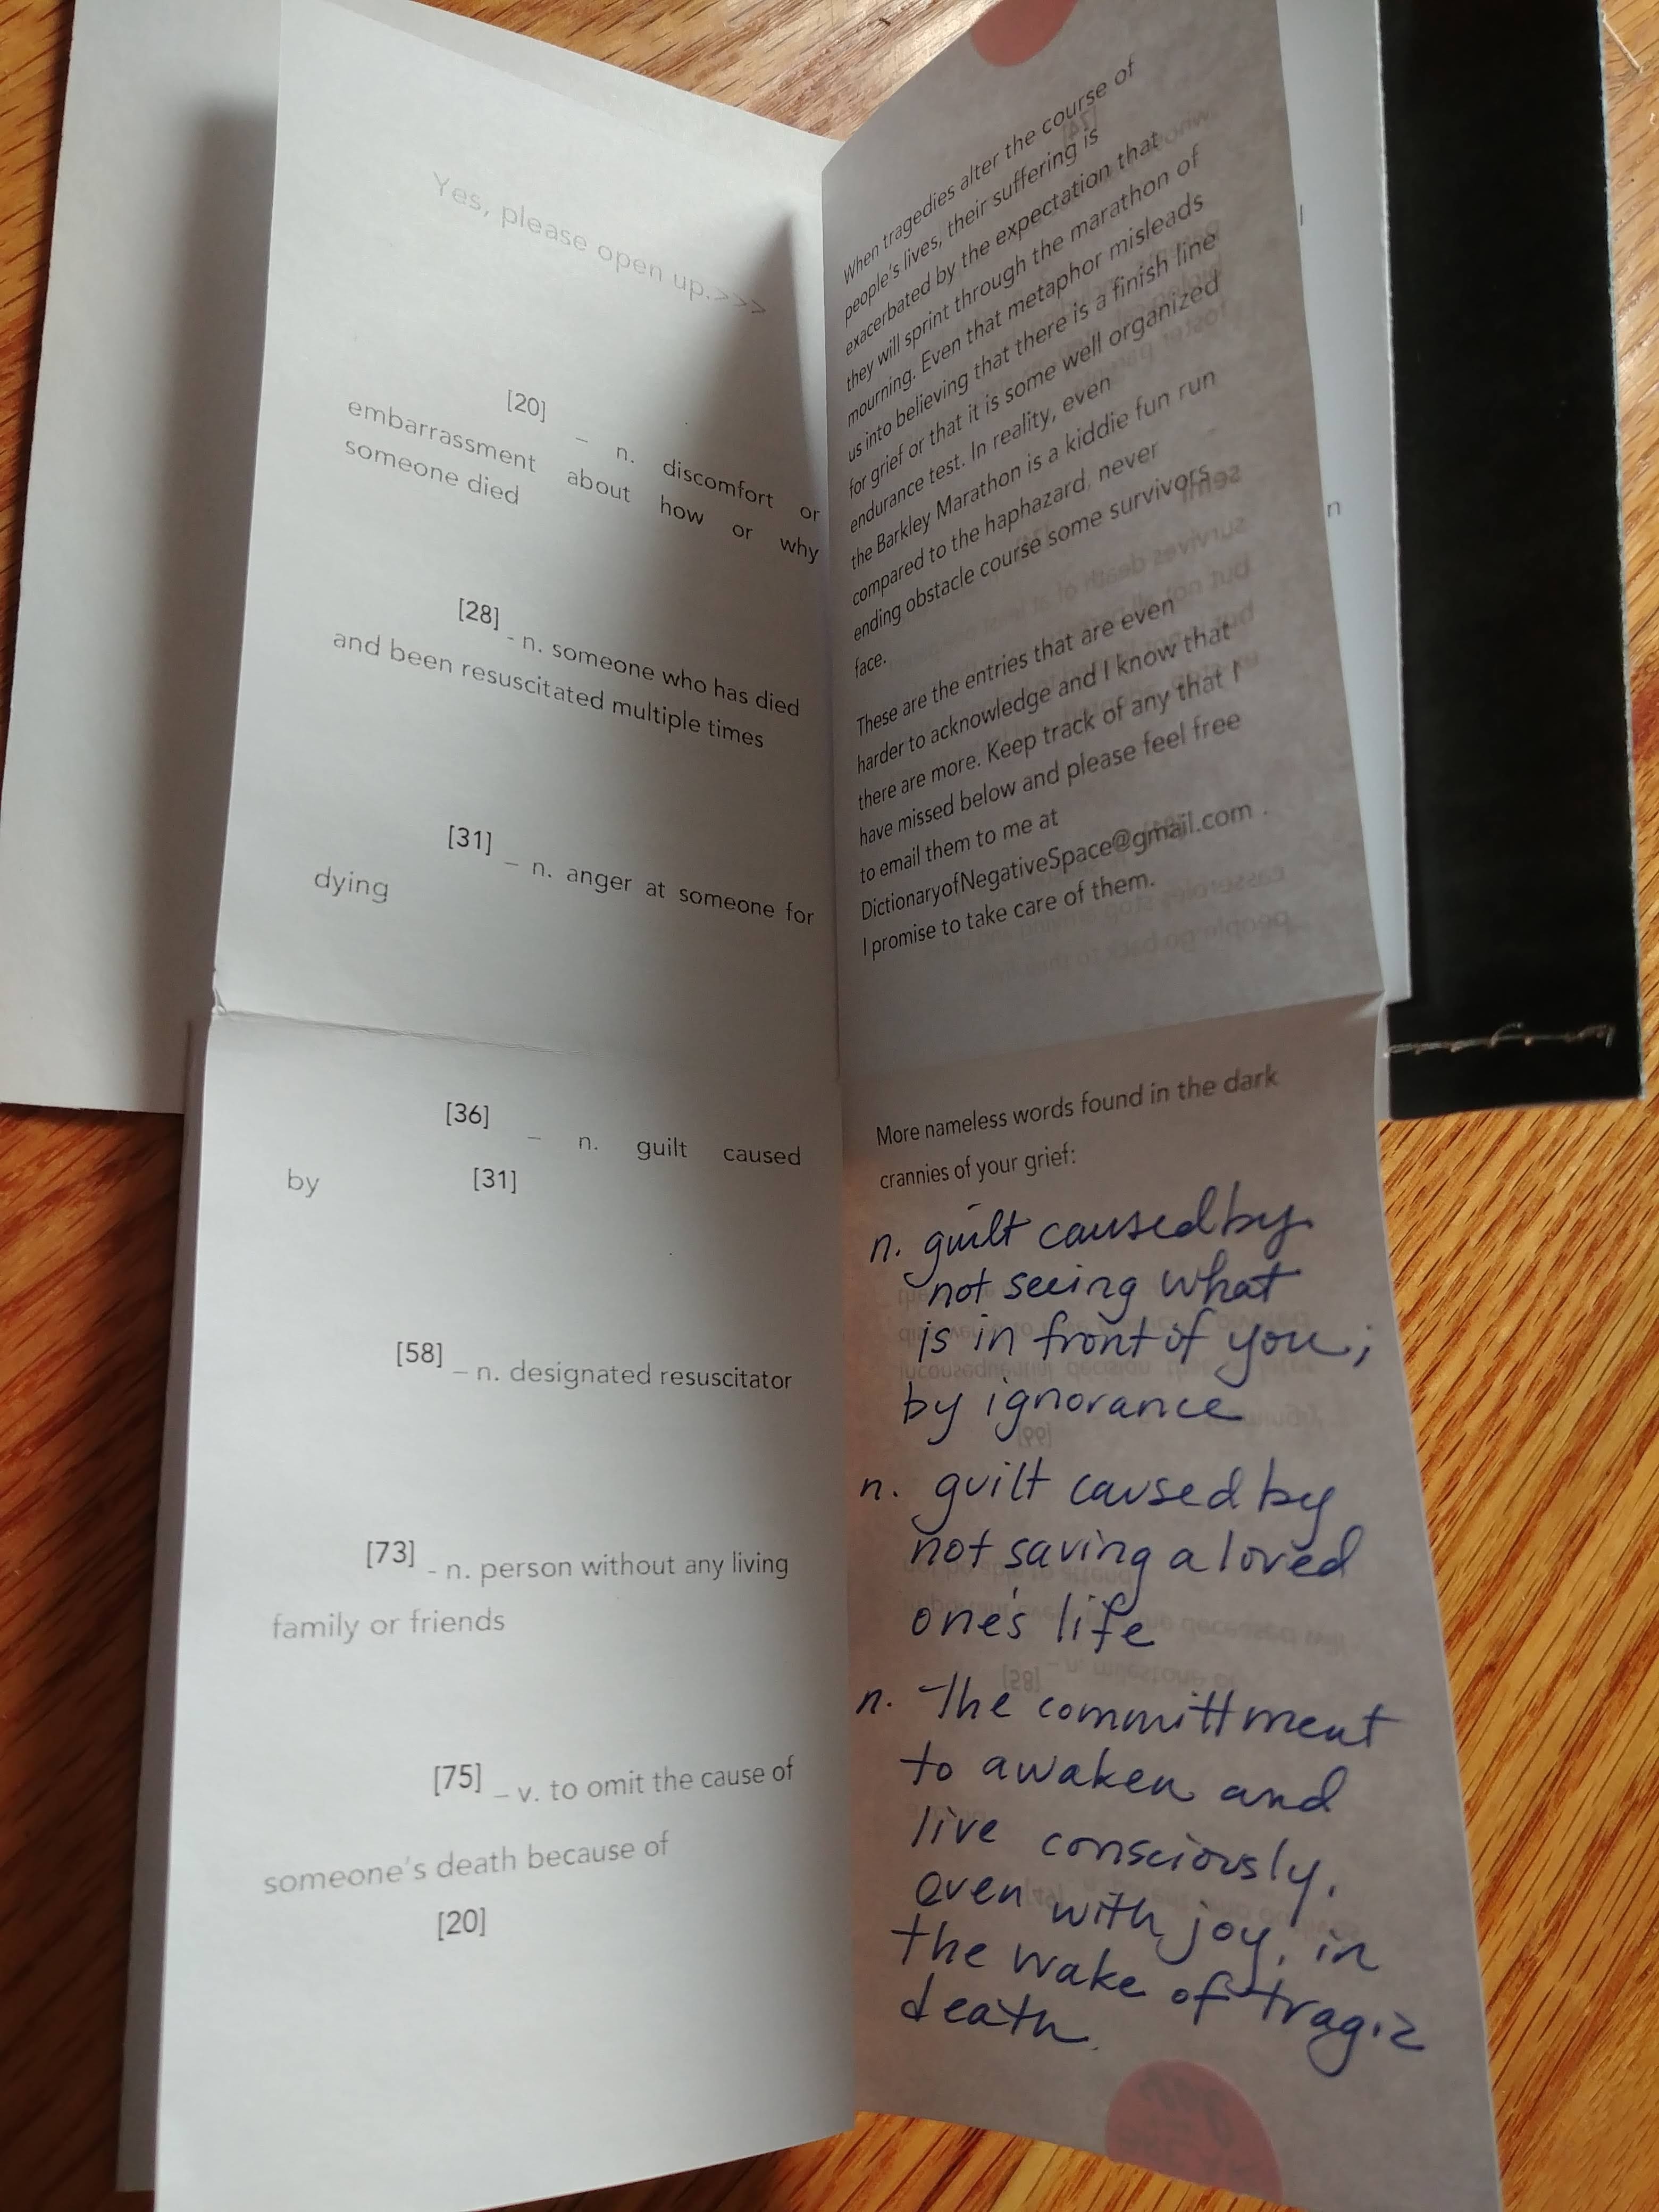 Yes, please open up.>>>
[20] – n. discomfort or
embarrassment about how or why
someone died
[28] - n. someone who has died
and been resuscitated multiple times
[31] – n. anger at someone for
dying
[36] – n. guilt caused
by [31]
[58] – n. designated resuscitator
[73] - n. person without any living
family or friends
[75] – v. to omit the cause of
someone's death because of
[20]
When tragedies alter the course of
people's lives, their suffering is
exacerbated by the expectation that
they will sprint through the marathon of
mourning. Even that metaphor misleads
us into believing that there is a finish line
for grief or that it is some well organized
endurance test. In reality, even
the Barkley Marathon is a kiddie fun run
compared to the haphazard, never
ending obstacle course some survivors
face.
These are the entries that are even
harder to acknowledge and I know that
there are more. Keep track of any that I
have missed below and please feel free
to email them to me at
DictionaryofNegativeSpace@gmail.com .
I promise to take care of them.
More nameless words found in the dark
crannies of your grief:
n. guilt caused by
not seeing what
is in front of you;
by ignorance
n. guilt caused by
not saving a loved
one's life
n. The committment
to awaken and
live consciously,
even with joy, in
the wake of tragic
death.
l
n